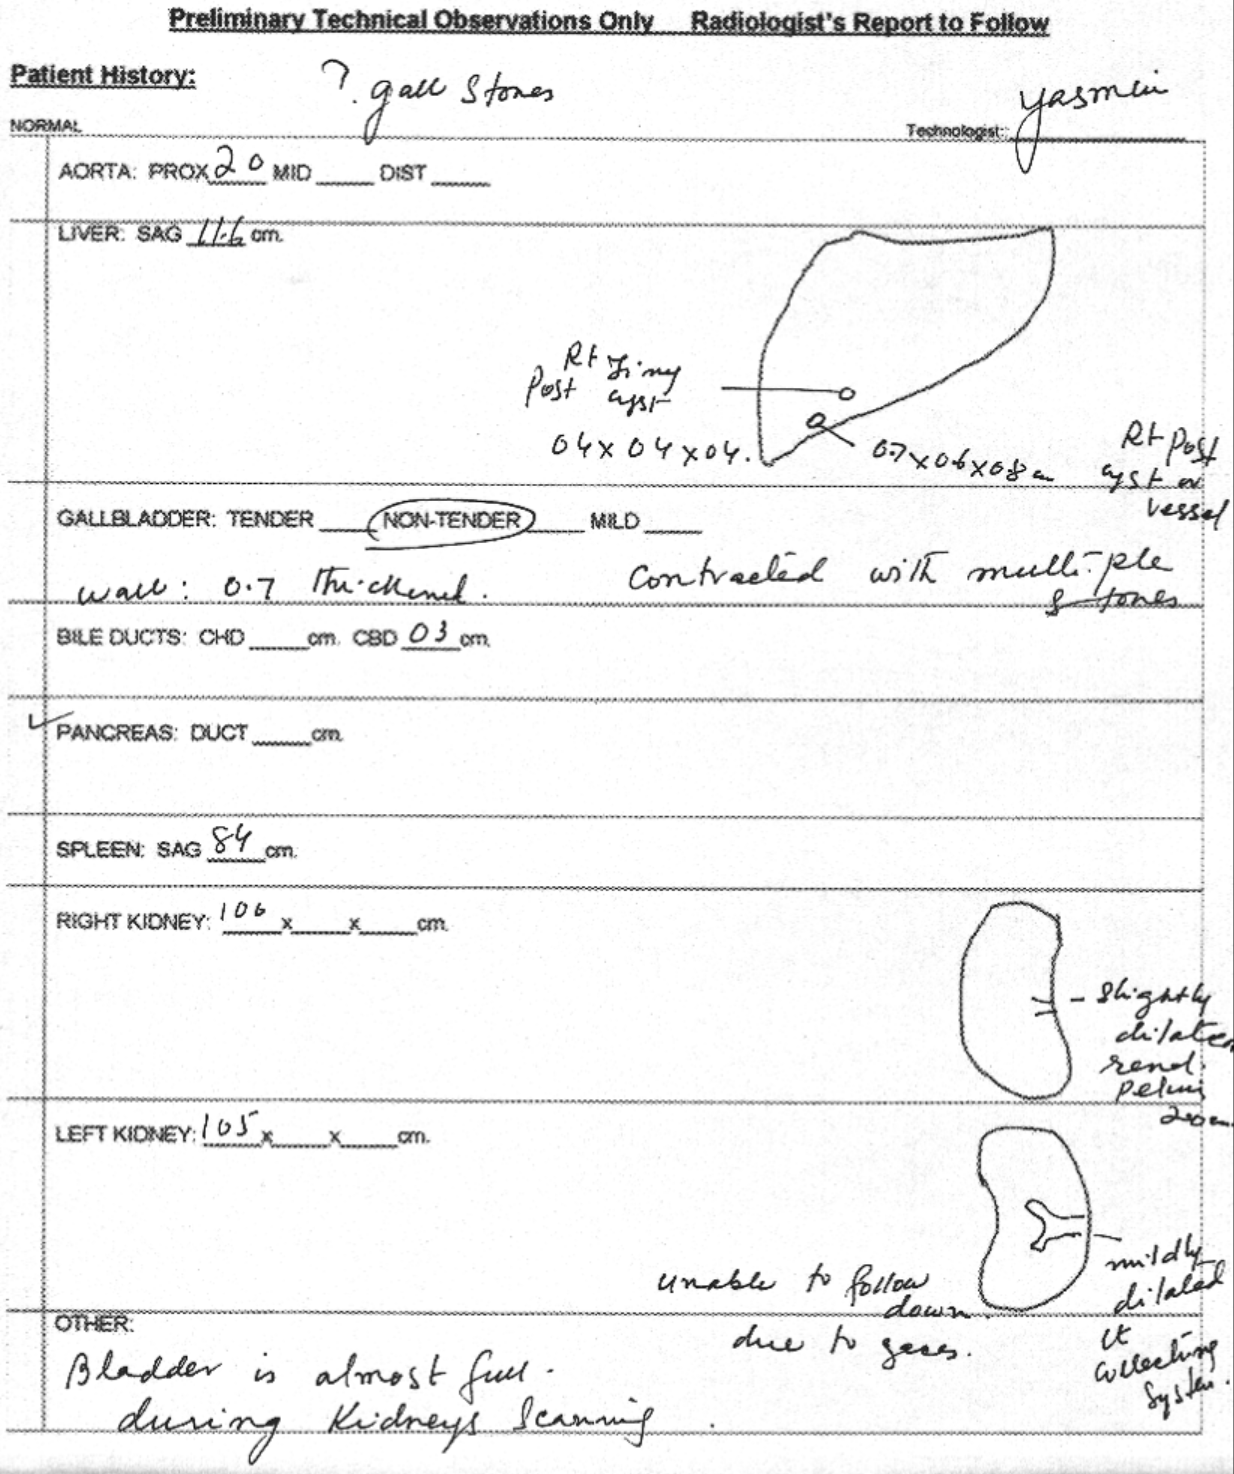 Preliminary Technical Observations Only Radiologist's Report to Follow
Patient History: ? gall Stones
Yasmin
NORMAL
Technologist:
AORTA: PROX 20 MID ____ DIST ____
LIVER: SAG 11.6 cm.
Rt Tiny
Post cyst
04 x 04 x 04.
0.7 x 0.6 x 0.8 cm
Rt Post
cyst or
vessel
GALLBLADDER: TENDER ____ NON-TENDER ____ MILD ____
wall: 0.7 thickened. Contracted with multiple
stones
BILE DUCTS: CHD ____ cm. CBD 03 cm.
✓ PANCREAS: DUCT ____ cm.
SPLEEN: SAG 84 cm.
RIGHT KIDNEY: 106 x ____ x ____ cm.
- Slightly
dilated
renal
Pelvis
LEFT KIDNEY: 105 x ____ x ____ cm.
mildly
dilated
Lt
Collecting
System.
unable to follow
down
due to gases.
OTHER:
Bladder is almost full.
during Kidneys Scanning.